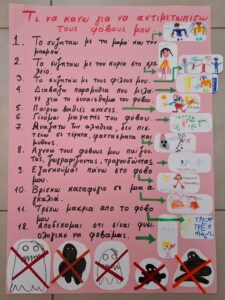 Τι να κάνω για να αντιμετωπίσω
τους φόβους μου
1. Το συζητάω με τη μαμά και τον
μπαμπά.
2. Το συζητάω με την κυρία στο σχο-
λείο.
3. Το συζητάω με τους φίλους μου.
4. Διαβάζω παραμύθια που μιλά-
νε για το συναίσθημα του φόβου.
5. Παίρνω βαθιές ανάσες.
6. Γίνομαι μαχητής του φόβου.
7. Αναζητώ την αλήθεια, δεν πισ-
τεύω σε τέρατα, φαντάσματα και
8. Διώχνω τους φόβους μου παίζον-
τας, ζωγραφίζοντας, τραγουδώντας
9. Εξασκούμαι πάνω στο φόβο
μου.
10. Βρίσκω καταφύγιο σε μια
αγκαλιά.
11. Τρέχω μακριά από το φόβο
μου
12. Αποδέχομαι ότι είναι φυσι-
ολογικό να φοβάμαι.